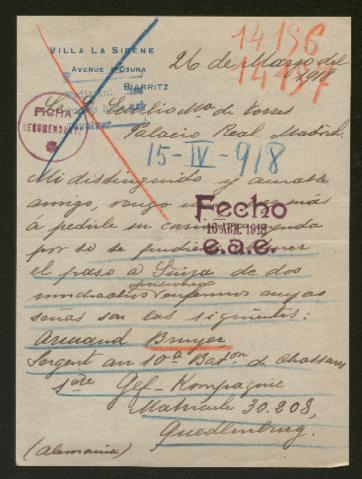 14196
VILLA LA SIRÈNE
AVENUE D'OSUNA
BIARRITZ
26 de Marzo del
1918
Sr. Dn. Emilio Ma. de Torres
Palacio Real Madrid.
FICHA
15-IV-918
Mi distinguido y amable
amigo, vengo una vez más
á pedirle su
Fecho
16 ABR. 1918
e.a.e.
por si se pudiera
el paso á Suiza de dos
prisioneros cuyas
señas son las siguientes:
Armand Bruyer
Sergent au 10ª Baton de Chasseurs
1ère Gef-Kompagnie
Matricule 30.208,
Quedlenburg.
(Alemania)